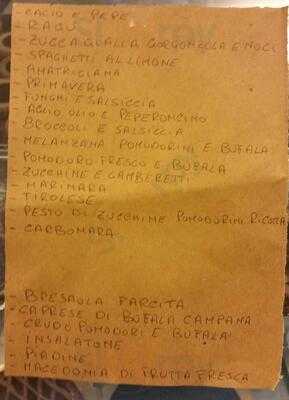 - CACIO E PEPE
- RAGÙ
- ZUCCA GIALLA GORGONZOLA E NOCI
- SPAGHETTI AL LIMONE
- AMATRICIANA
- PRIMAVERA
- FUNGHI E SALSICCIA
- AGLIO OLIO E PEPERONCINO
- BROCCOLI E SALSICCIA
- MELANZANA POMODORINI E BUFALA
- POMODORO FRESCO E BUFALA
- ZUCCHINE E GAMBERETTI
- MARINARA
- TIROLESE
- PESTO DI ZUCCHINE POMODORINI RICOTTA
- CARBONARA
- BRESAOLA FARCITA
- CAPRESE DI BUFALA CAMPANA
- CRUDO POMODORI E BUFALA
- INSALATONE
- PIADINE
- MACEDONIA DI FRUTTA FRESCA